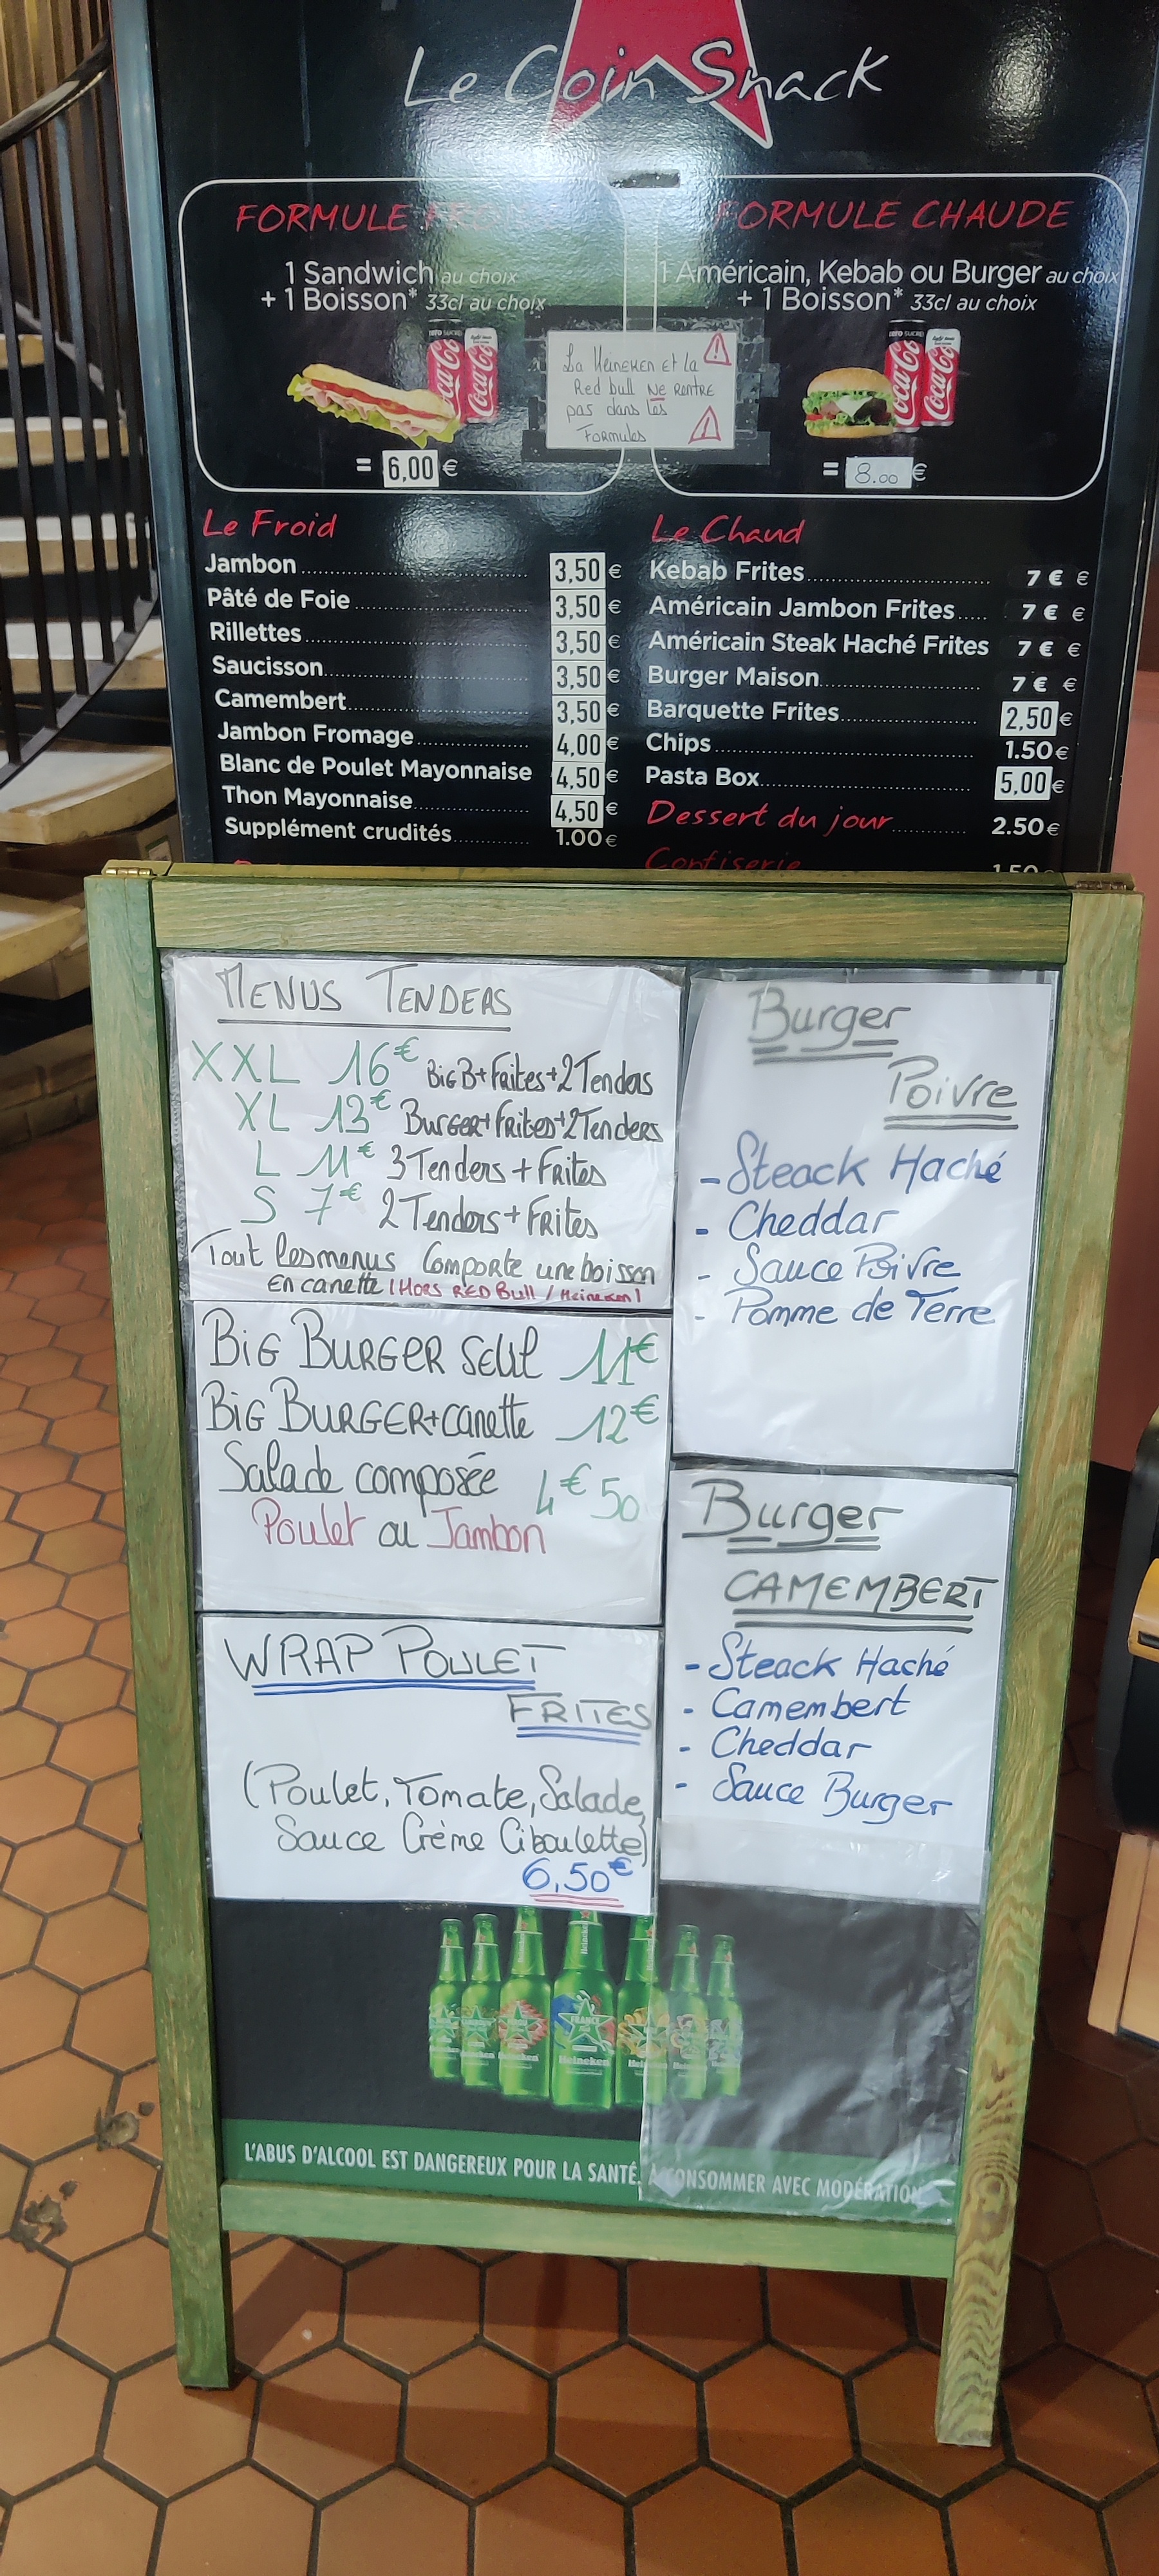 Le Coin Snack
FORMULE
1 Sandwich au choix
+ 1 Boisson* 33cl au choix
= 6,00 €
FORMULE CHAUDE
1 Américain, Kebab ou Burger au choix
+ 1 Boisson* 33cl au choix
= 8.00 €
La Heineken et la
Red bull NE RENTRE
pas dans les
Formules
Le Froid
Jambon 3,50 €
Pâté de Foie 3,50 €
Rillettes 3,50 €
Saucisson 3,50 €
Camembert 3,50 €
Jambon Fromage 4,00 €
Blanc de Poulet Mayonnaise 4,50 €
Thon Mayonnaise 4,50 €
Supplément crudités 1.00 €
Le Chaud
Kebab Frites 7 € €
Américain Jambon Frites 7 € €
Américain Steak Haché Frites 7 € €
Burger Maison 7 € €
Barquette Frites 2,50 €
Chips 1.50 €
Pasta Box 5,00 €
Dessert du jour 2.50 €
Confiserie 1.50
MENUS TENDERS
XXL 16€ BIG B+Frites+2Tenders
XL 13€ BURGER+FRites+2Tenders
L 11€ 3Tenders+FRites
S 7€ 2Tenders+FRites
Tout les menus Comporte une boisson
En canette (HORS RED Bull / Heineken)
BIG BURGER seul 11€
BIG BURGER+canette 12€
Salade composée 4€50
Poulet ou Jambon
WRAP POULET
FRITES
(Poulet, Tomate, Salade,
Sauce Crème Ciboulette)
6,50€
Burger
Poivre
- Steack Haché
- Cheddar
- Sauce Poivre
- Pomme de Terre
Burger
CAMEMBERT
- Steack Haché
- Camembert
- Cheddar
- Sauce Burger
FRANCE
Heineken
L'ABUS D'ALCOOL EST DANGEREUX POUR LA SANTÉ. À CONSOMMER AVEC MODÉRATION